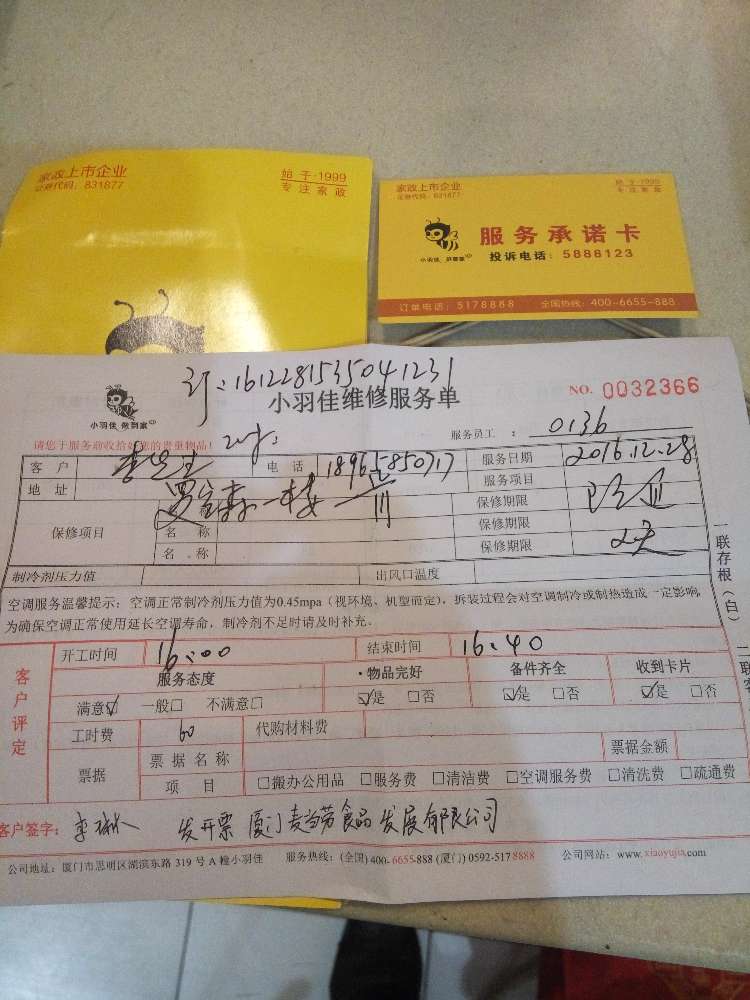 家政上市企业
证券代码：831877
始于·1999
专注家政
家政上市企业
证券代码：831877
始于·1999
专注家政
服务承诺卡
小羽佳 做到家
投诉电话：5888123
订单电话：5178888 全国热线：400-6655-888
161228153504 1231
小羽佳维修服务单
NO. 0032366
小羽佳 做到家
请您于服务前收拾好您的贵重物品！
服务员工：0136
客户 电话 18965850717 服务日期 2016.12.28
地址 一楼 服务项目
保修项目 名称 保修期限
名称 保修期限
名称 保修期限 2天
制冷剂压力值 出风口温度
空调服务温馨提示：空调正常制冷剂压力值为0.45mpa（视环境、机型而定），拆装过程会对空调制冷或制热造成一定影响，
为确保空调正常使用延长空调寿命，制冷剂不足时请及时补充。
一联存根（白）
二联客
客户评定
开工时间 16:00 结束时间 16:40
服务态度 ·物品完好 备件齐全 收到卡片
满意☑ 一般□ 不满意□ ☑是 □否 ☑是 □否 ☑是 □否
工时费 60 代购材料费
票据 票据名称 票据金额
项目 □搬办公用品 □服务费 □清洁费 □空调服务费 □清洗费 □疏通费
客户签字： 发开票 厦门麦当劳食品发展有限公司
公司地址：厦门市思明区湖滨东路 319 号 A 幢小羽佳 服务热线：(全国) 400-6655-888 (厦门) 0592-517 8888 公司网站：www.xiaoyujia.com